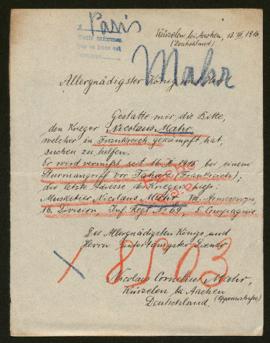 Paris
Würselen bei Aachen, 12. III. 1916
(Deutschland)
Mahr
Allergnädigster König und Herr
Gestatte mir die Bitte,
den Krieger Nicolaus Mahr,
welcher in Frankreich gekämpft hat,
suchen zu helfen.
Er wird vermißt seit 1915 bei einem
Sturmangriff vor Tahure (Frankreich);
die letzte Adresse des Kriegers hiess:
Musketier Nicolaus Mahr VIII. Armeecorps
16. Division Inf. Regt. No 69. 5. Compagnie
Des Allergnädigsten Königs und
Herrn
8103
Nicolaus Cornelius Mahr,
Würselen bei Aachen
Deutschland